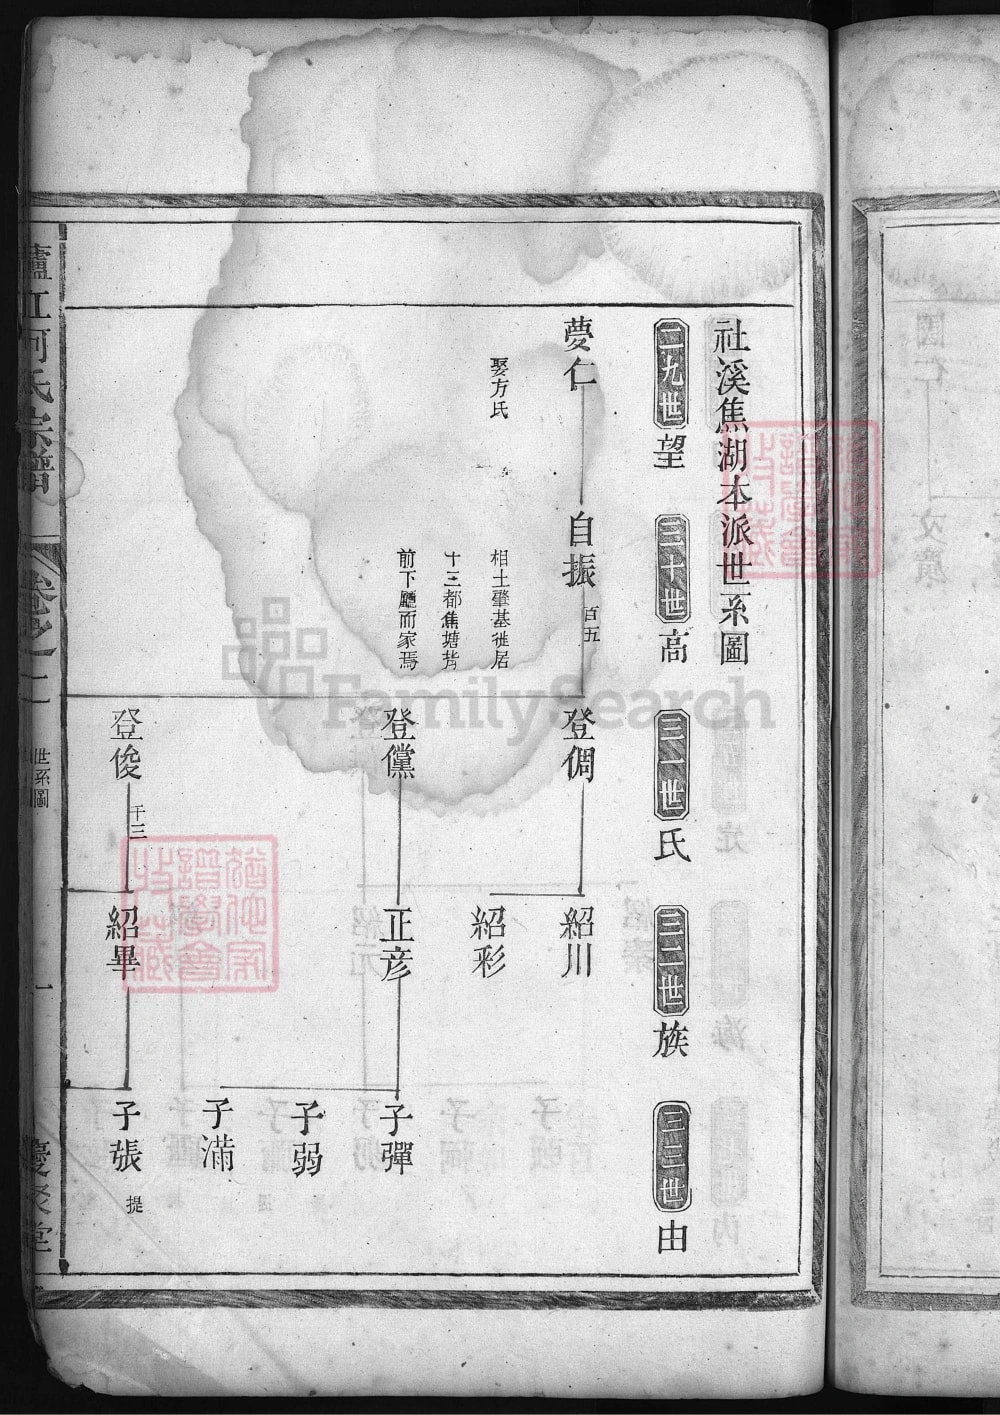 社溪焦湖本派世系圖
二九世 望
三十世 高
三一世 氏
三二世 族
三三世 由
夢仁
娶方氏
自振
百五
相土肇基徙居
十三都焦塘背
前下廳而家焉
登倜
登儻
登俊
千三
紹川
紹彩
正彦
紹畢
子彈
子弱
子滿
子張
提
廬江何氏宗譜
卷之二
世系圖
一
慶聚堂
FamilySearch